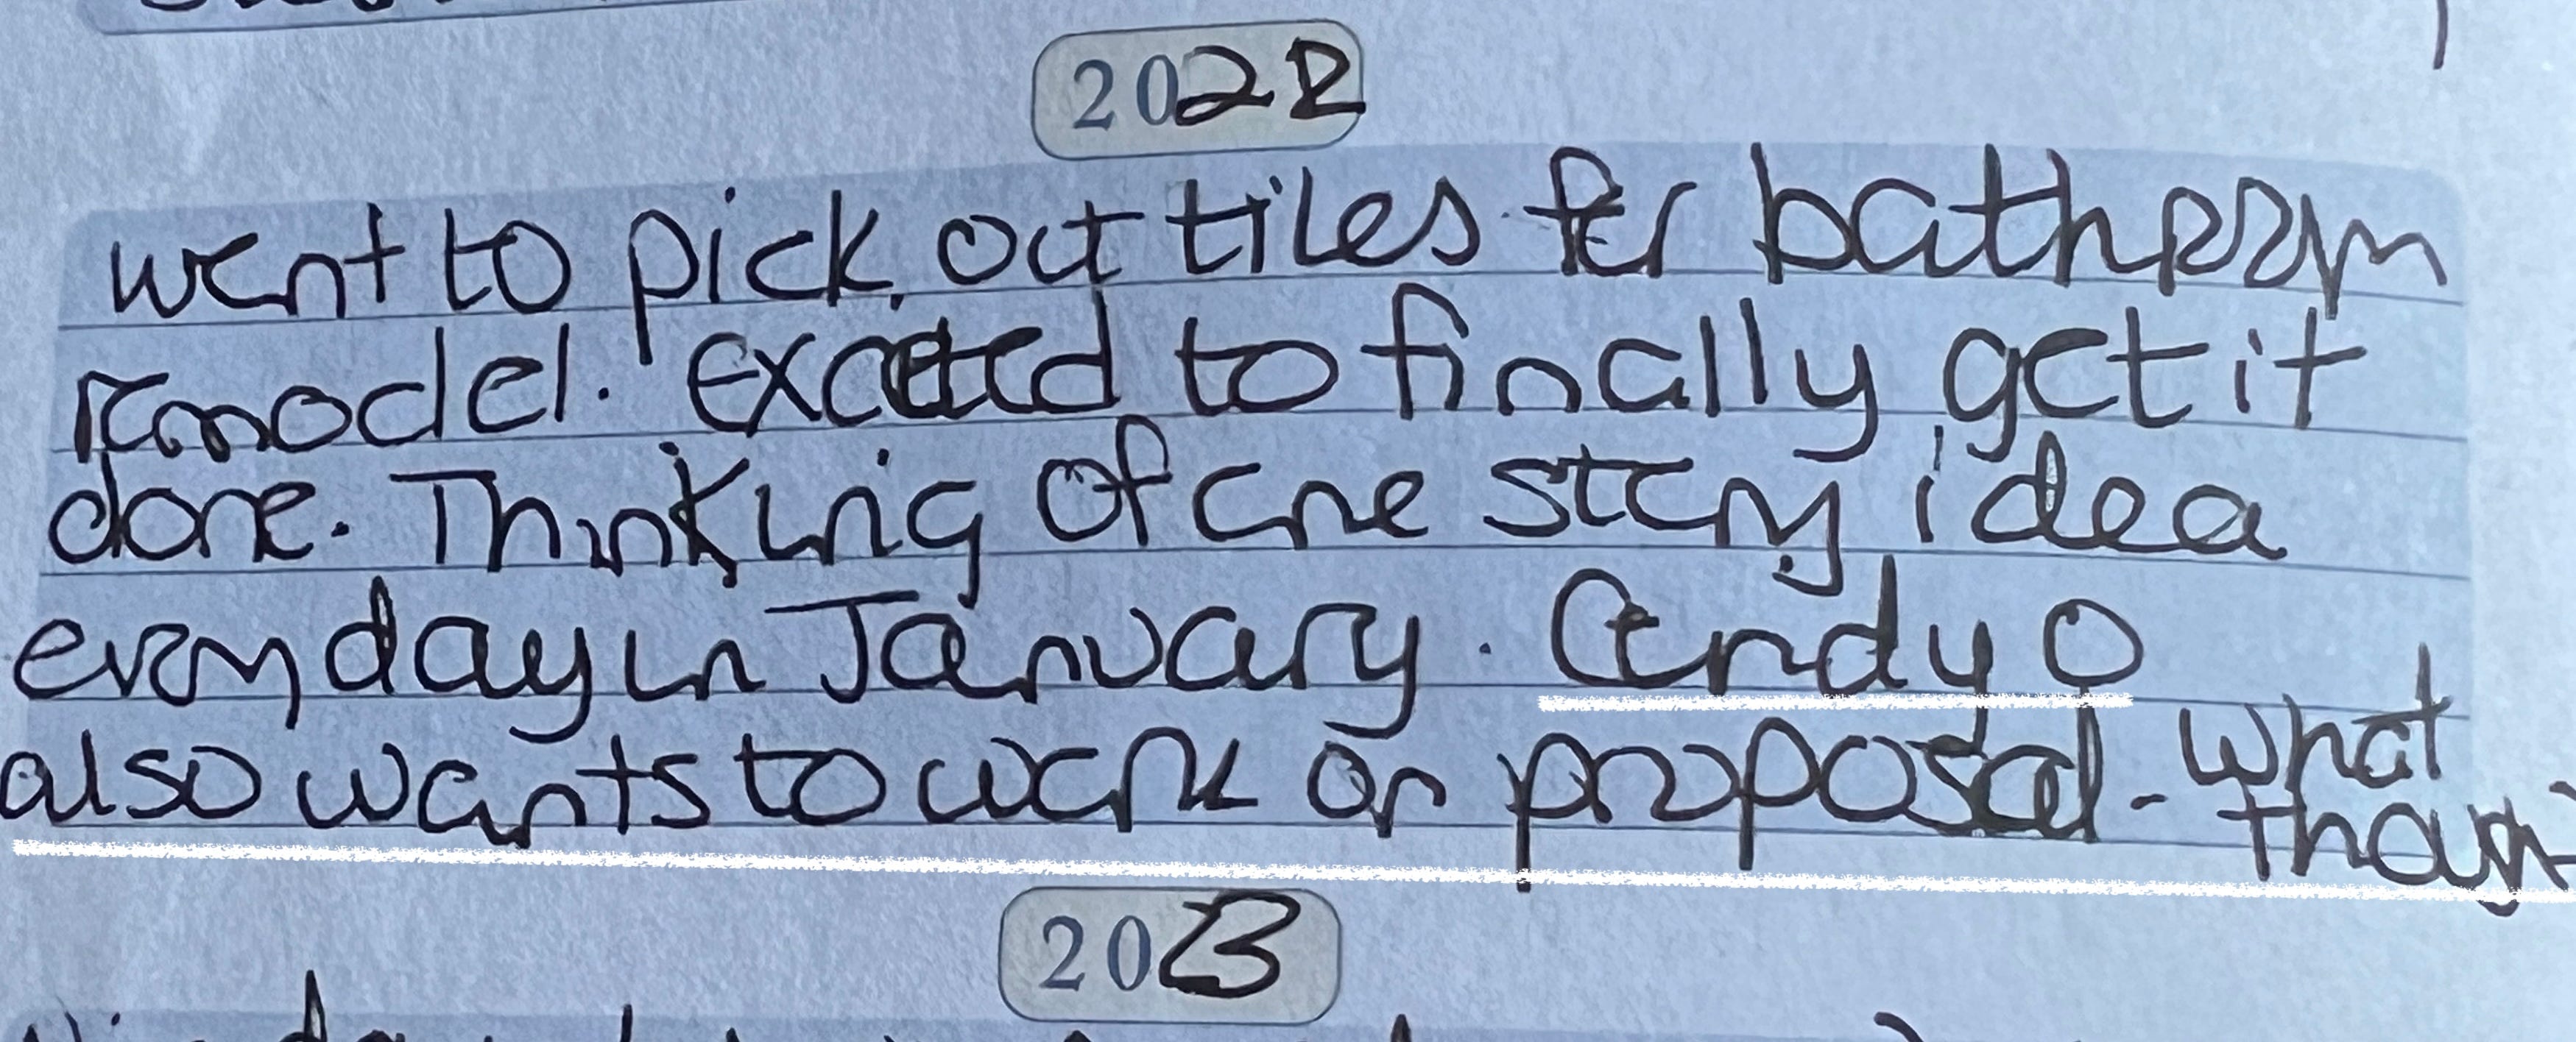 2022
went to pick out tiles for bathroom
remodel. Excited to finally get it
done. Thinking of one story idea
every day in January. Cendy O
also wants to work on proposal - what
though
2023